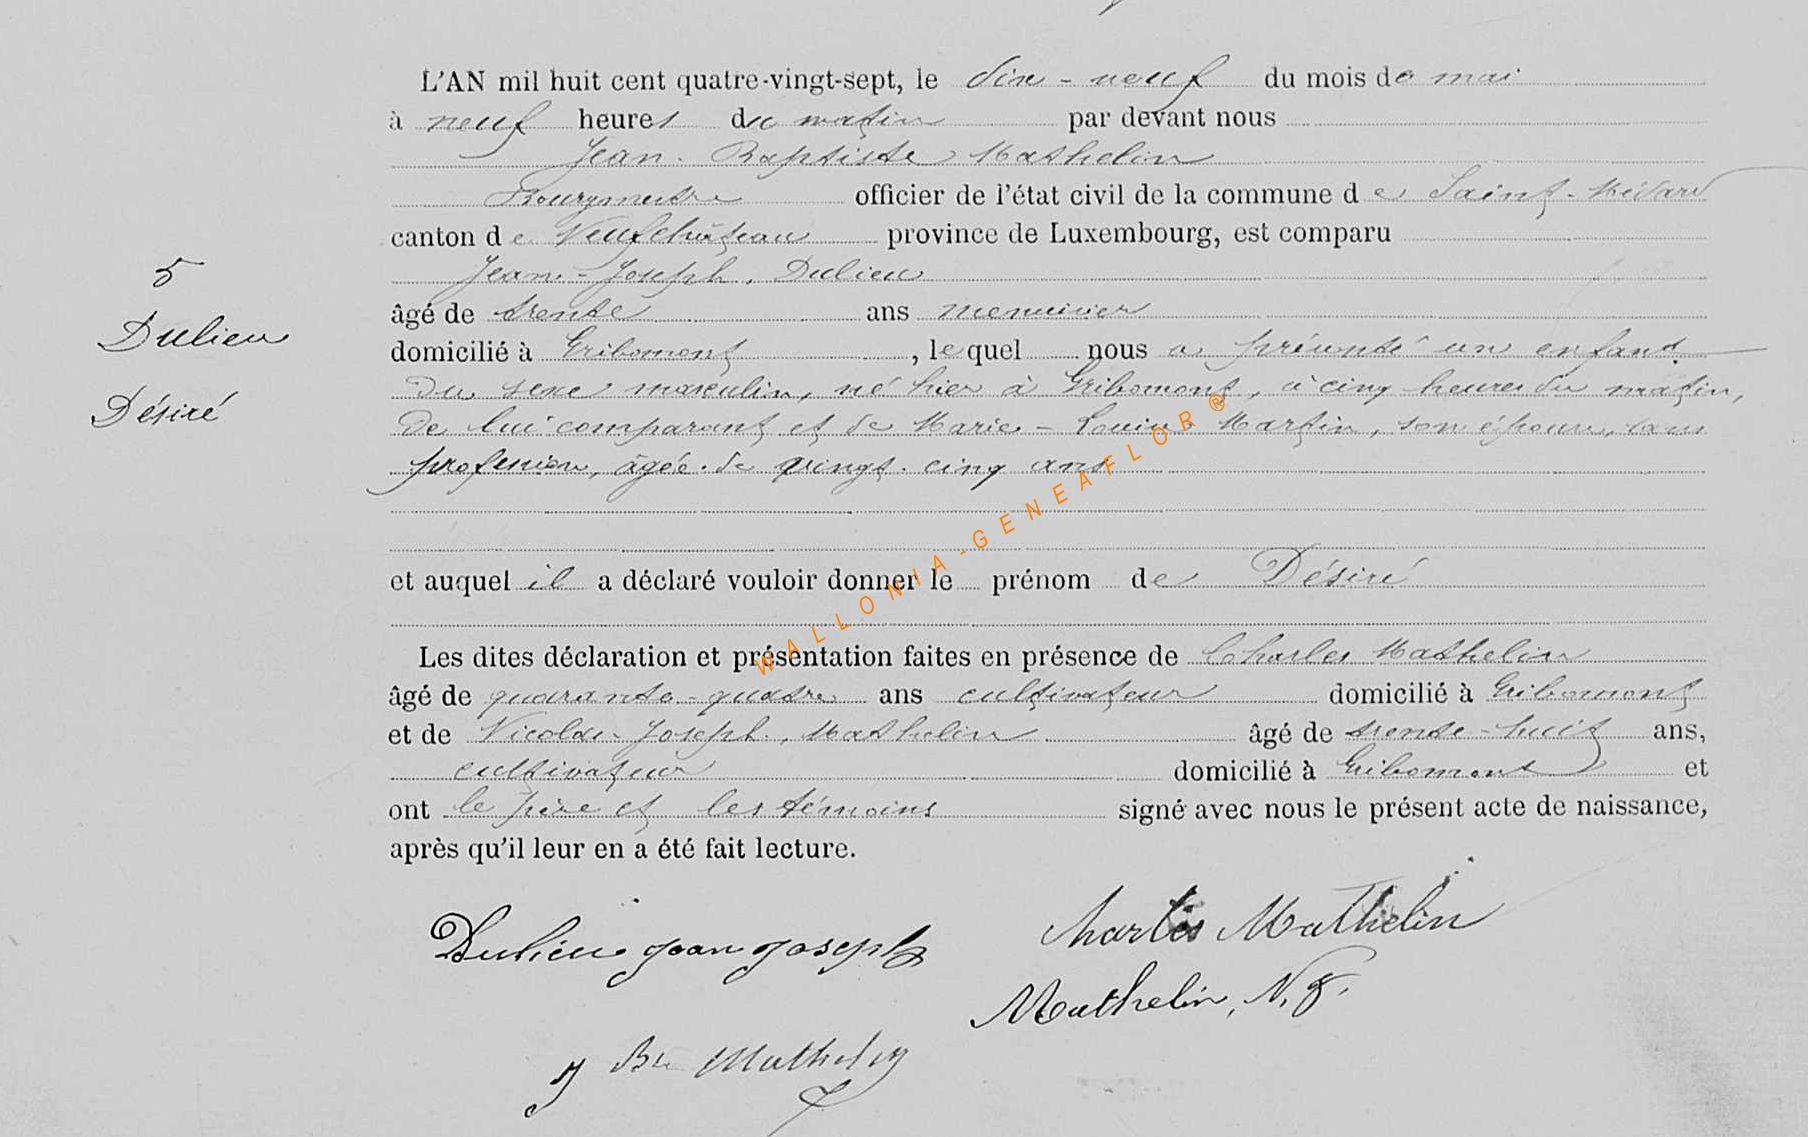 L'AN mil huit cent quatre-vingt-sept, le dix-neuf du mois de mai
à neuf heures du matin par devant nous
Jean-Baptiste Mathelin
Bourgmestre officier de l'état civil de la commune de Saint-Médard
canton de Neufchâteau province de Luxembourg, est comparu
Jean-Joseph Dulieu
âgé de trente ans menuisier
domicilié à Gribomont, lequel nous a présenté un enfant
du sexe masculin, né hier à Gribomont, à cinq heures du matin,
de lui comparant et de Marie-Louise Martin, son épouse, sans
profession, âgée de vingt-cinq ans
et auquel il a déclaré vouloir donner le prénom de Désiré
Les dites déclaration et présentation faites en présence de Charles Mathelin
âgé de quarante-quatre ans cultivateur domicilié à Gribomont
et de Nicolas-Joseph Mathelin âgé de trente-huit ans,
cultivateur domicilié à Gribomont et
ont le père et les témoins signé avec nous le présent acte de naissance,
après qu'il leur en a été fait lecture.
5
Dulieu
Désiré
WALLONIA-GENEAFLOR ®
Dulieu jean joseph
Charles Mathelin
Mathelin, N. J.
J Bte Mathelin